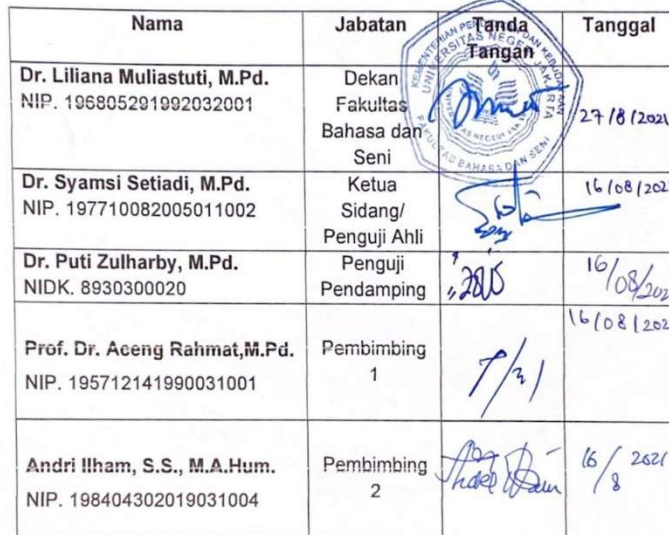 Nama Jabatan Tanda Tangan Tanggal
Dr. Liliana Muliastuti, M.Pd.
NIP. 196805291992032001
Dekan
Fakultas
Bahasa dan
Seni
KEMENTERIAN PENDIDIKAN DAN KEBUDAYAAN
UNIVERSITAS NEGERI JAKARTA
FAKULTAS BAHASA DAN SENI
27/8/2021
Dr. Syamsi Setiadi, M.Pd.
NIP. 197710082005011002
Ketua
Sidang/
Penguji Ahli
16/08/202
Dr. Puti Zulharby, M.Pd.
NIDK. 8930300020
Penguji
Pendamping
16/08/202
Prof. Dr. Aceng Rahmat,M.Pd.
NIP. 195712141990031001
Pembimbing
1
16/08/202
Andri Ilham, S.S., M.A.Hum.
NIP. 198404302019031004
Pembimbing
2
16/8 2021